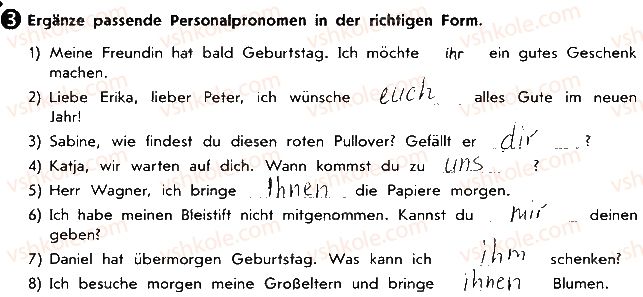 3 Ergänze passende Personalpronomen in der richtigen Form.
1) Meine Freundin hat bald Geburtstag. Ich möchte ihr ein gutes Geschenk
machen.
2) Liebe Erika, lieber Peter, ich wünsche euch alles Gute im neuen
Jahr!
3) Sabine, wie findest du diesen roten Pullover? Gefällt er dir ?
4) Katja, wir warten auf dich. Wann kommst du zu uns ?
5) Herr Wagner, ich bringe Ihnen die Papiere morgen.
6) Ich habe meinen Bleistift nicht mitgenommen. Kannst du mir deinen
geben?
7) Daniel hat übermorgen Geburtstag. Was kann ich ihm schenken?
8) Ich besuche morgen meine Großeltern und bringe ihnen Blumen.